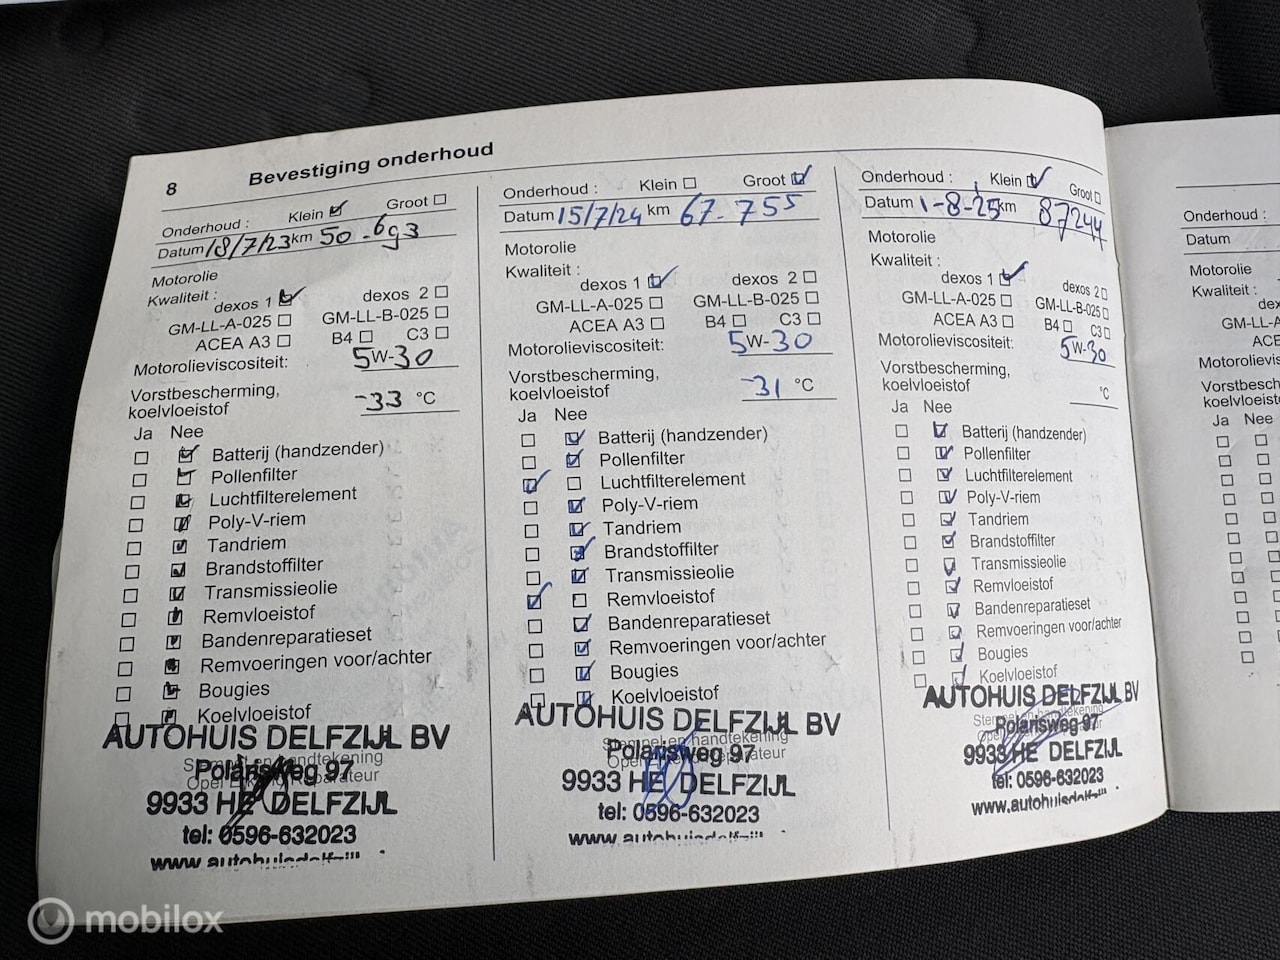 8 Bevestiging onderhoud
Onderhoud : Klein Groot
Datum 18/7/23 km 50.693
Motorolie
Kwaliteit :
dexos 1 dexos 2
GM-LL-A-025 GM-LL-B-025
ACEA A3 B4 C3
Motorolieviscositeit: 5W-30
Vorstbescherming,
koelvloeistof -33 °C
Ja Nee
Batterij (handzender)
Pollenfilter
Luchtfilterelement
Poly-V-riem
Tandriem
Brandstoffilter
Transmissieolie
Remvloeistof
Bandenreparatieset
Remvoeringen voor/achter
Bougies
Koelvloeistof
AUTOHUIS DELFZIJL BV
Stempel en handtekening
Polarisweg 97
9933 HE DELFZIJL
tel: 0596-632023
www.autohuisdelfzijl
Onderhoud : Klein Groot
Datum 15/7/24 km 67.755
Motorolie
Kwaliteit :
dexos 1 dexos 2
GM-LL-A-025 GM-LL-B-025
ACEA A3 B4 C3
Motorolieviscositeit: 5W-30
Vorstbescherming,
koelvloeistof -31 °C
Ja Nee
Batterij (handzender)
Pollenfilter
Luchtfilterelement
Poly-V-riem
Tandriem
Brandstoffilter
Transmissieolie
Remvloeistof
Bandenreparatieset
Remvoeringen voor/achter
Bougies
Koelvloeistof
AUTOHUIS DELFZIJL BV
Stempel en handtekening
Polarisweg 97
9933 HE DELFZIJL
tel: 0596-632023
www.autohuisdelfzijl
Onderhoud : Klein Groot
Datum 1-8-25 km 87244
Motorolie
Kwaliteit :
dexos 1 dexos 2
GM-LL-A-025 GM-LL-B-025
ACEA A3 B4 C3
Motorolieviscositeit: 5W-30
Vorstbescherming,
koelvloeistof °C
Ja Nee
Batterij (handzender)
Pollenfilter
Luchtfilterelement
Poly-V-riem
Tandriem
Brandstoffilter
Transmissieolie
Remvloeistof
Bandenreparatieset
Remvoeringen voor/achter
Bougies
Koelvloeistof
AUTOHUIS DELFZIJL BV
Stempel en handtekening
Polarisweg 97
9933 HE DELFZIJL
tel: 0596-632023
www.autohuisdelfzijl
Onderhoud :
Datum
Motorolie
Kwaliteit :
dexos
GM-LL-A
ACE
Motorolievis
Vorstbesch
koelvloeis
Ja Nee
mobilox